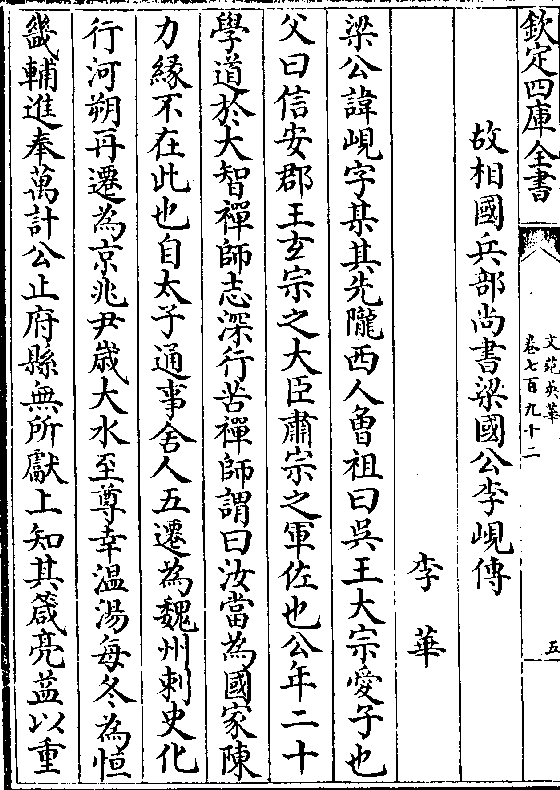 欽定四庫全書
文苑英華
卷七百九十二
五
故相國兵部尚書梁國公李峴傳
李華
梁公諱峴字某其先隴西人曾祖曰吳王大宗愛子也
父曰信安郡王玄宗之大臣肅宗之軍佐也公年二十
學道於大智禪師志深行苦禪師謂曰汝當為國家陳
力緣不在此也自太子通事舍人五遷為魏州刺史化
行河朔再遷為京兆尹歲大水至尊幸溫湯每冬為恒
畿輔進奉萬計公止府縣無所獻上知其箴亮益以重